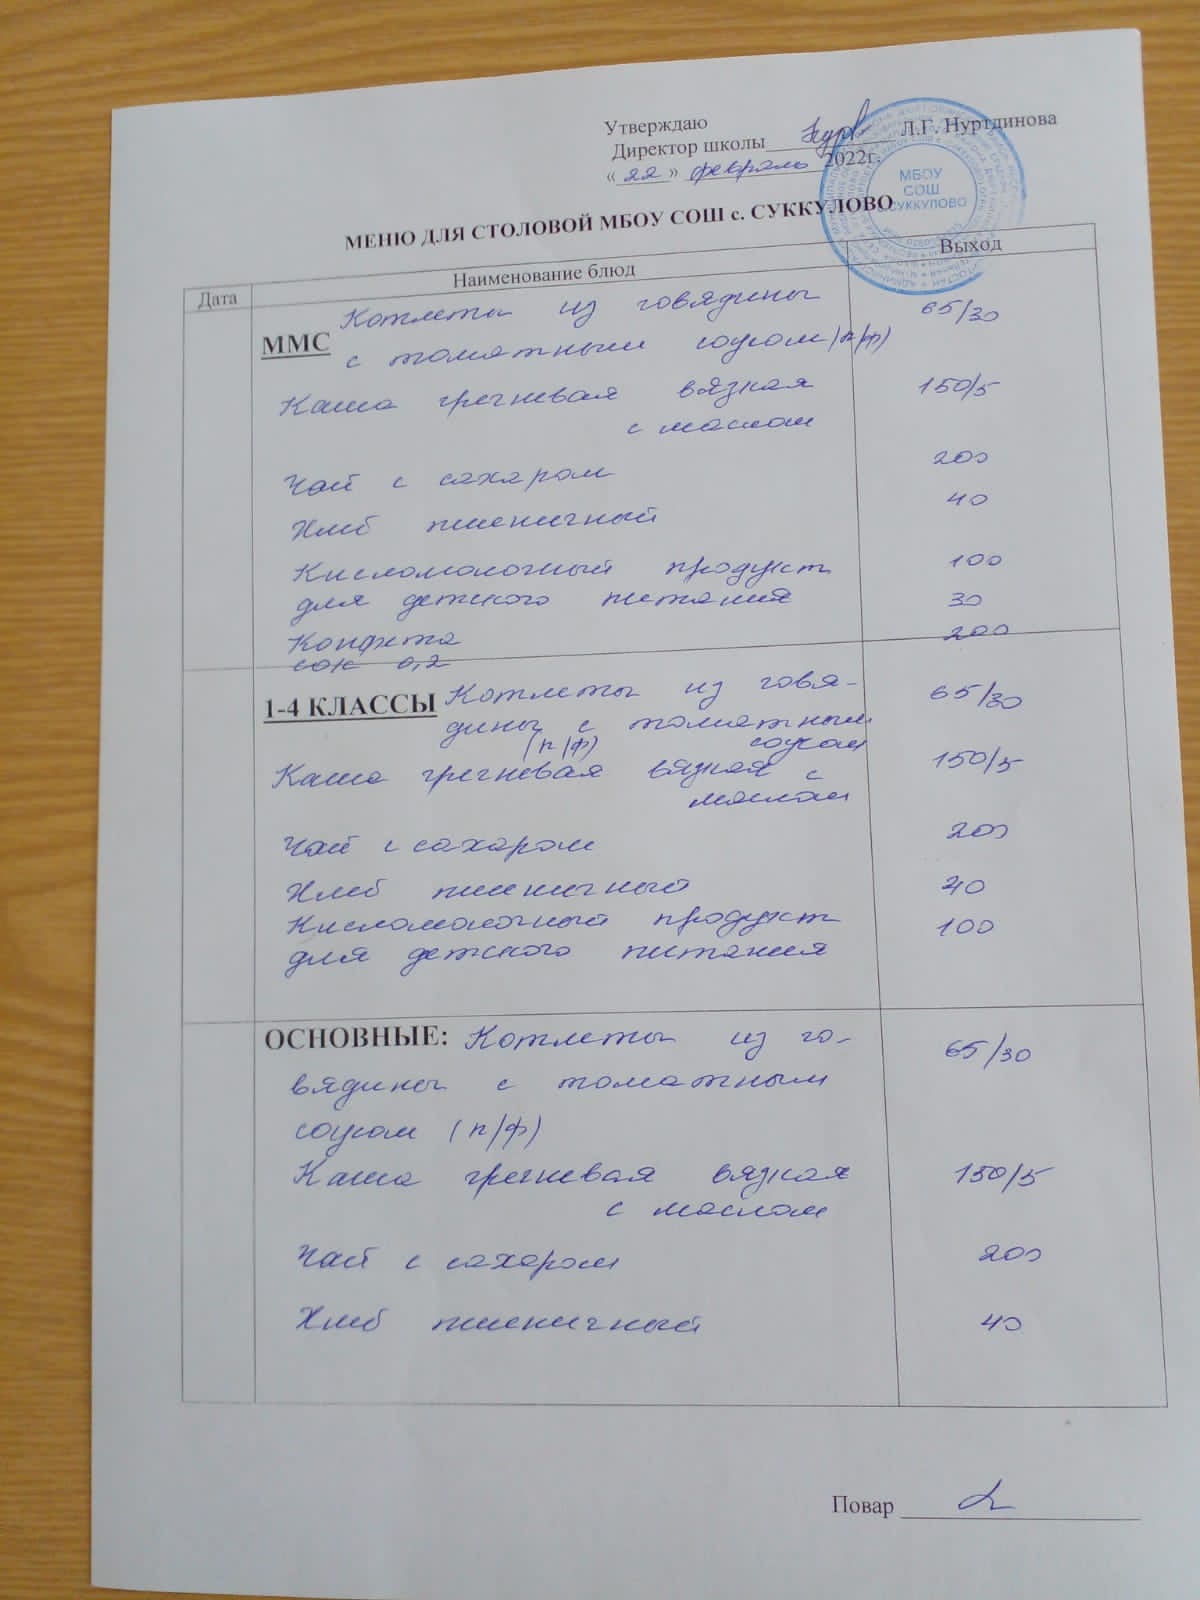 Утверждаю
Директор школы Л.Г. Нуртдинова
«22» февраль 2022г.
МБОУ
СОШ
с.СУККУЛОВО
МЕНЮ ДЛЯ СТОЛОВОЙ МБОУ СОШ с. СУККУЛОВО
Дата Наименование блюд Выход
ММС Котлеты из говядины 65/30
с томатным соусом (п/ф)
Каша гречневая вязкая 150/5
с маслом
Чай с сахаром 200
Хлеб пшеничный 40
Кисломолочный продукт 100
для детского питания
Конфета 30
сок 0,2 200
1-4 КЛАССЫ Котлеты из говя- 65/30
дины с томатным
(п/ф) соусом
Каша гречневая вязкая с 150/5
маслом
Чай с сахаром 200
Хлеб пшеничный 40
Кисломолочный продукт 100
для детского питания
ОСНОВНЫЕ: Котлеты из го- 65/30
вядины с томатным
соусом (п/ф)
Каша гречневая вязкая 150/5
с маслом
Чай с сахаром 200
Хлеб пшеничный 40
Повар